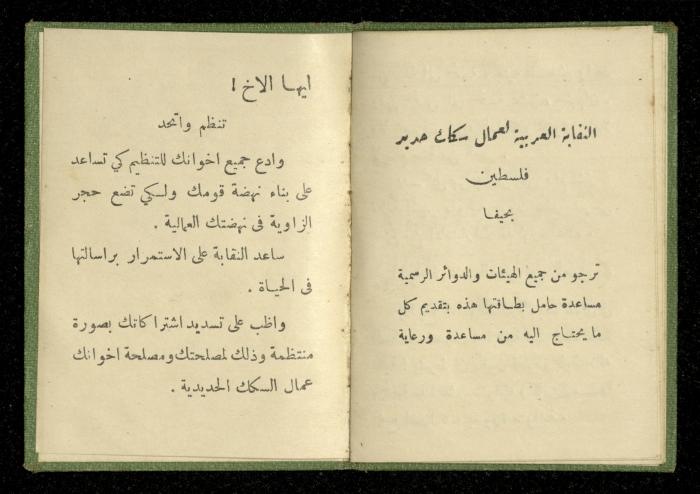 النقابة العربية لعمال سكك حديد
فلسطين
بحيفا
ترجو من جميع الهيئات والدوائر الرسمية
مساعدة حامل بطاقتها هذه بتقديم كل
ما يحتاج اليه من مساعدة ورعاية
ايها الاخ !
تنظم واتحد
وادع جميع اخوانك للتنظيم كي تساعد
على بناء نهضة قومك ولكي تضع حجر
الزاوية فى نهضتك العمالية .
ساعد النقابة على الاستمرار براسالتها
فى الحياة .
واظب على تسديد اشتراكاتك بصورة
منتظمة وذلك لمصلحتك ومصلحة اخوانك
عمال السكك الحديدية .